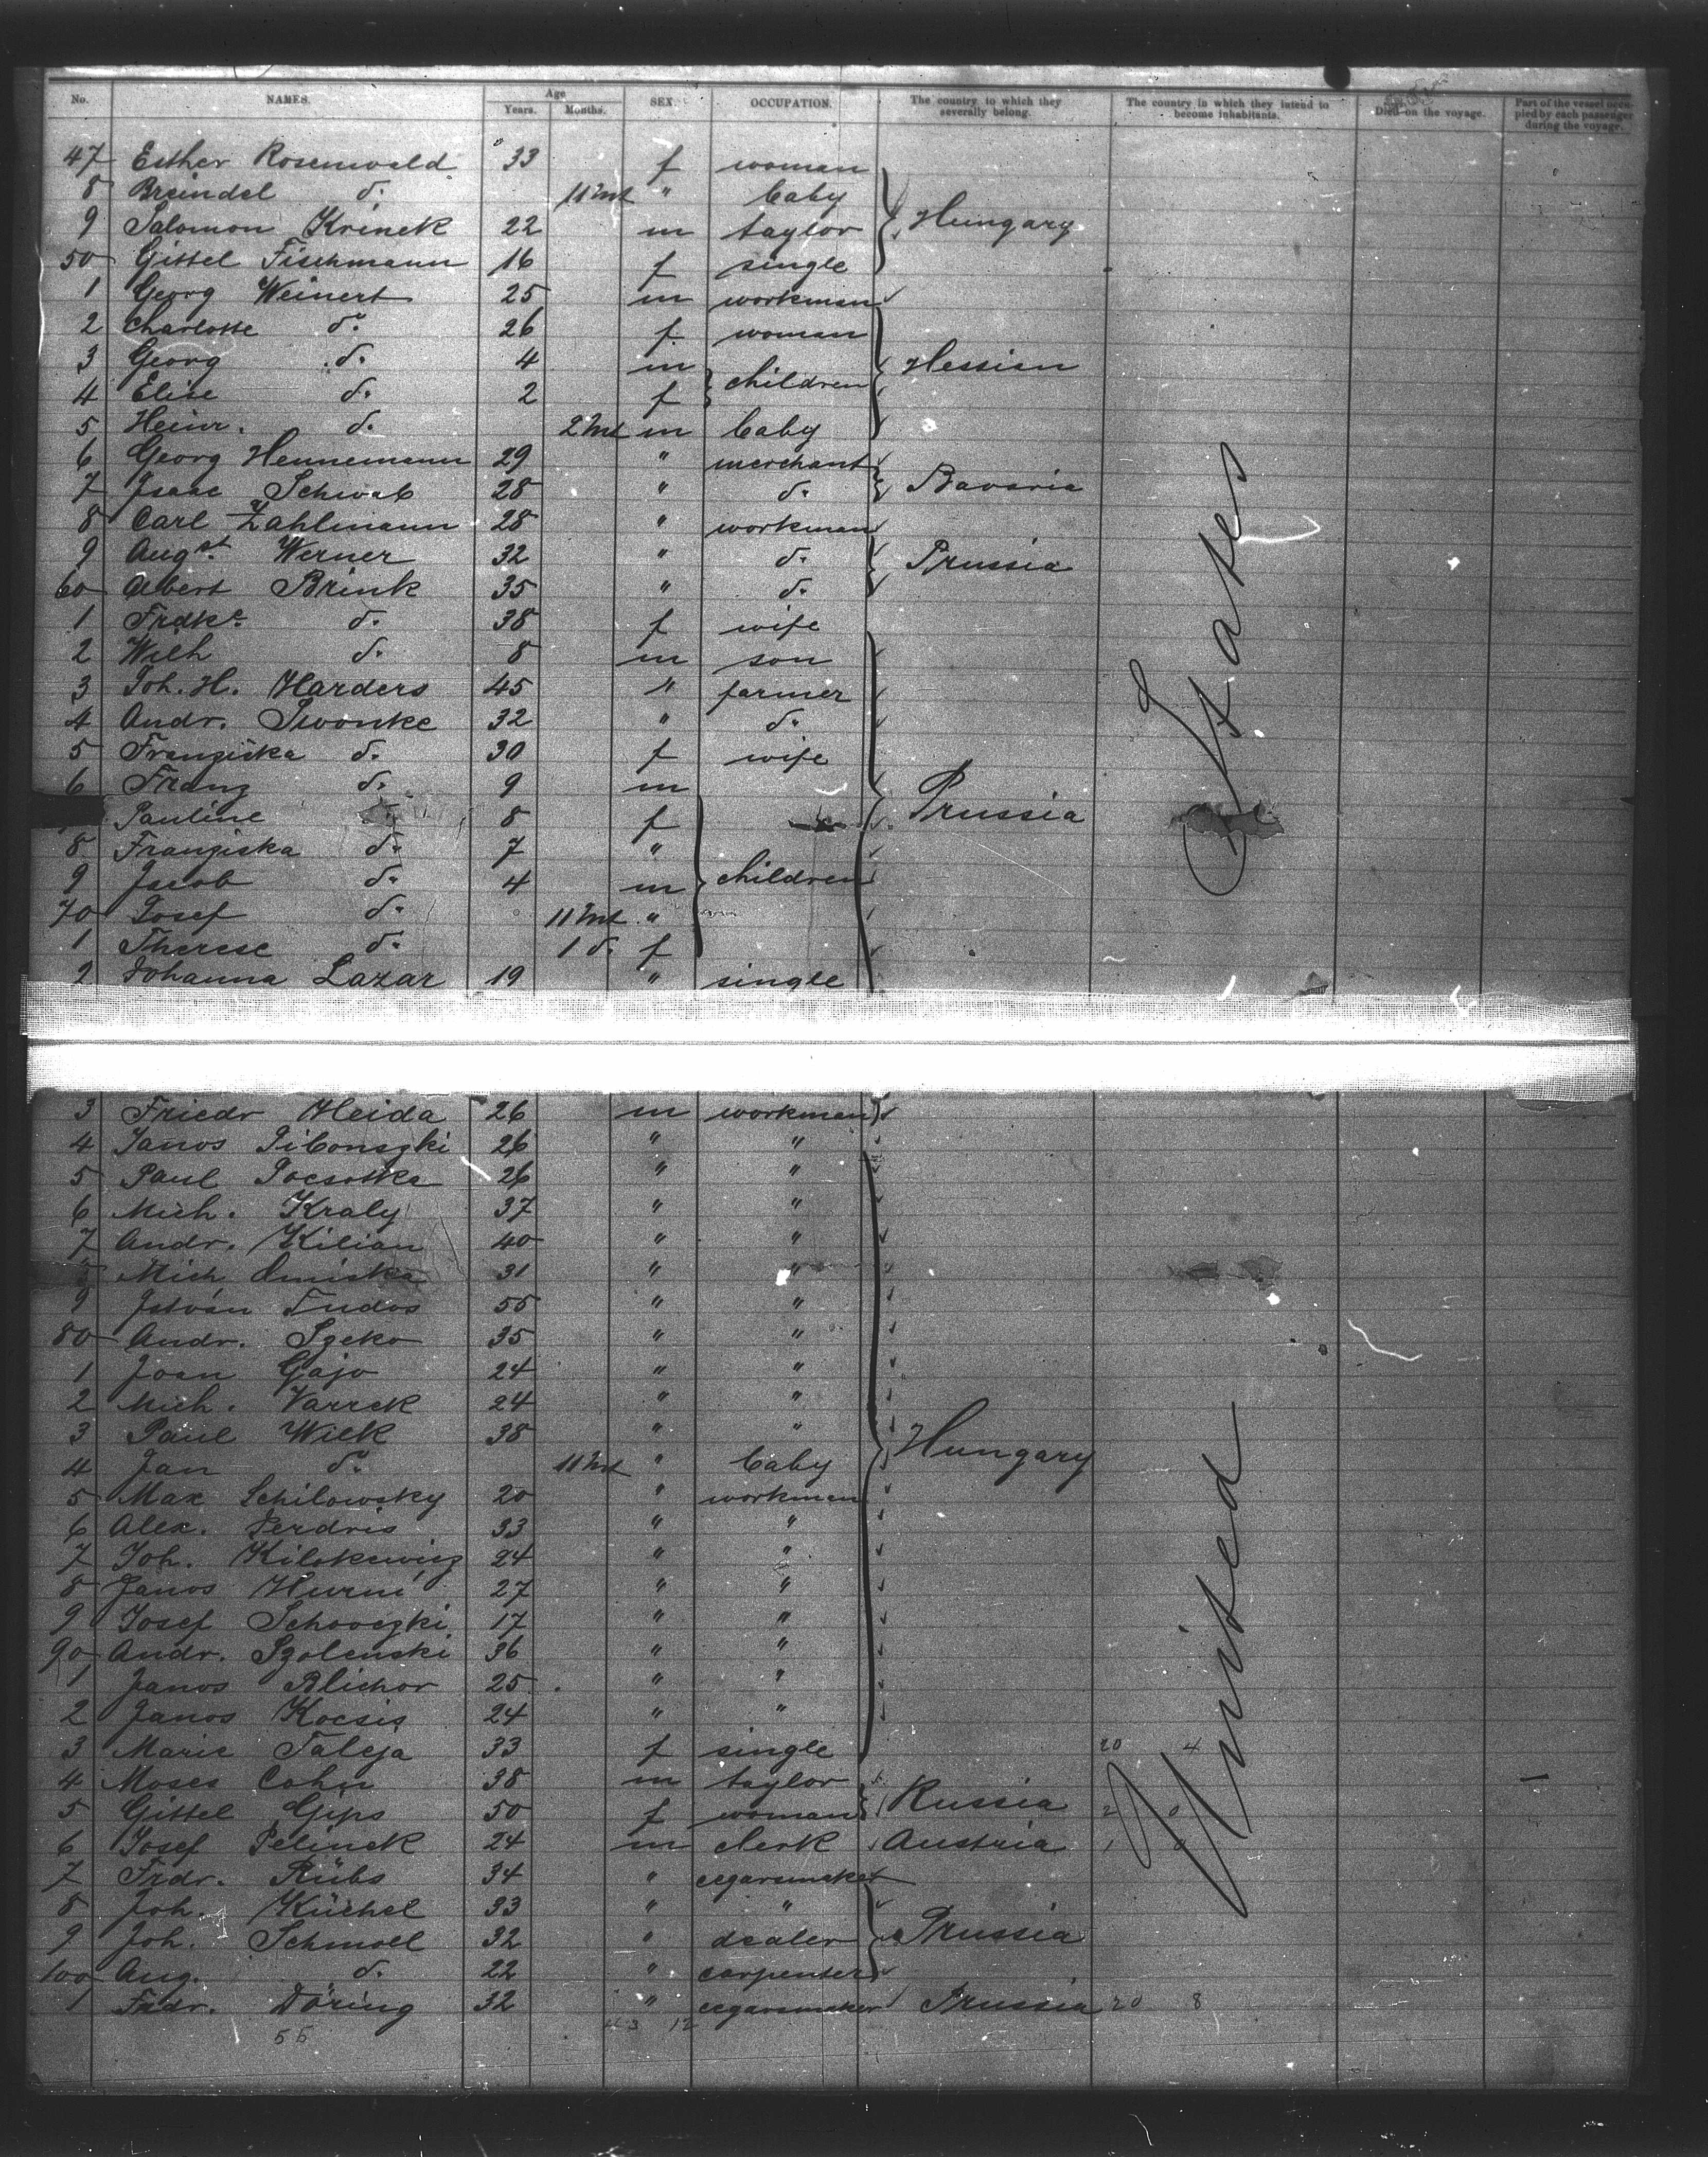 No. NAMES. Age Years. Months. SEX. OCCUPATION. The country to which they severally belong. The country in which they intend to become inhabitants. Died on the voyage. Part of the vessel occupied by each passenger during the voyage.
47 Esther Rosenwald 33 f woman
8 Breindel do. 11 Mt " baby
9 Salomon Krinek 22 m taylor Hungary
50 Gittel Fischmann 16 f single
1 Georg Weinert 25 m workman
2 Charlotte do. 26 f woman
3 Georg do. 4 m Hessian
4 Elise do. 2 f children
5 Heinr. do. 2 Mt m baby
6 Georg Hennemann 29 " merchant
7 Isaac Schwab 28 " do. Bavaria
8 Carl Zahlmann 28 " workman
9 Augst. Werner 32 " do. Prussia
60 Albert Brink 35 " do.
1 Frdke. do. 38 f wife
2 Wilh do. 8 m son
3 Joh. H. Harders 45 " farmer
4 Andr. Swonke 32 " do.
5 Franziska do. 30 f wife
6 Franz do. 9 m
Pauline 8 f Prussia
8 Franziska do. 7 "
9 Jacob do. 4 m children
70 Josef do. 11 Mt "
1 Therese do. 1 do. f
2 Johanna Lazar 19 " single
3 Friedr Heida 26 m workman
4 Janos Tibonszki 26 " "
5 Paul Pocsotka 26 " "
6 Mich. Kraly 37 " "
7 Andr. Kilian 40 " "
Mich 31 " "
9 István Tudos 55 " "
80 Andr. Szeko 35 " "
1 Joan Gajo 24 " "
2 Mich. Varrek 24 " "
3 Paul Wilk 38 " " Hungary
4 Jan do. 11 Mt " baby
5 Max Schilowsky 20 " workman
6 Alex. Perdris 33 " "
7 Joh. Kilokewicz 24 " "
8 Janos Hurni 27 " "
9 Josef Schooczki 17 " "
90 Andr. Szolenski 36 " "
1 Janos Blichor 25 " "
2 Janos Kocsis 24 " "
3 Marie Taleja 33 f single 20 4
4 Moses Cohn 38 m taylor
5 Gittel Gips 50 f woman Russia 2 0
6 Josef Pelinek 24 m clerk Austria 1 0
7 Frdr. Rübs 34 " cegarsmaker
8 Joh. Küchel 33 " "
9 Joh. Schmoll 32 " dealer Prussia
100 Aug. do. 22 " carpenter
1 Frdr. Döring 32 " cegarsmaker Prussia 20 8
55 43 12
United States